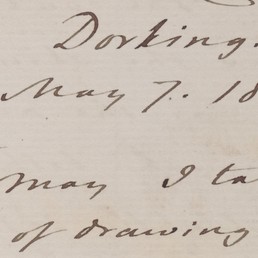 Dorking.
May 7. 18
may I ta
of drawing